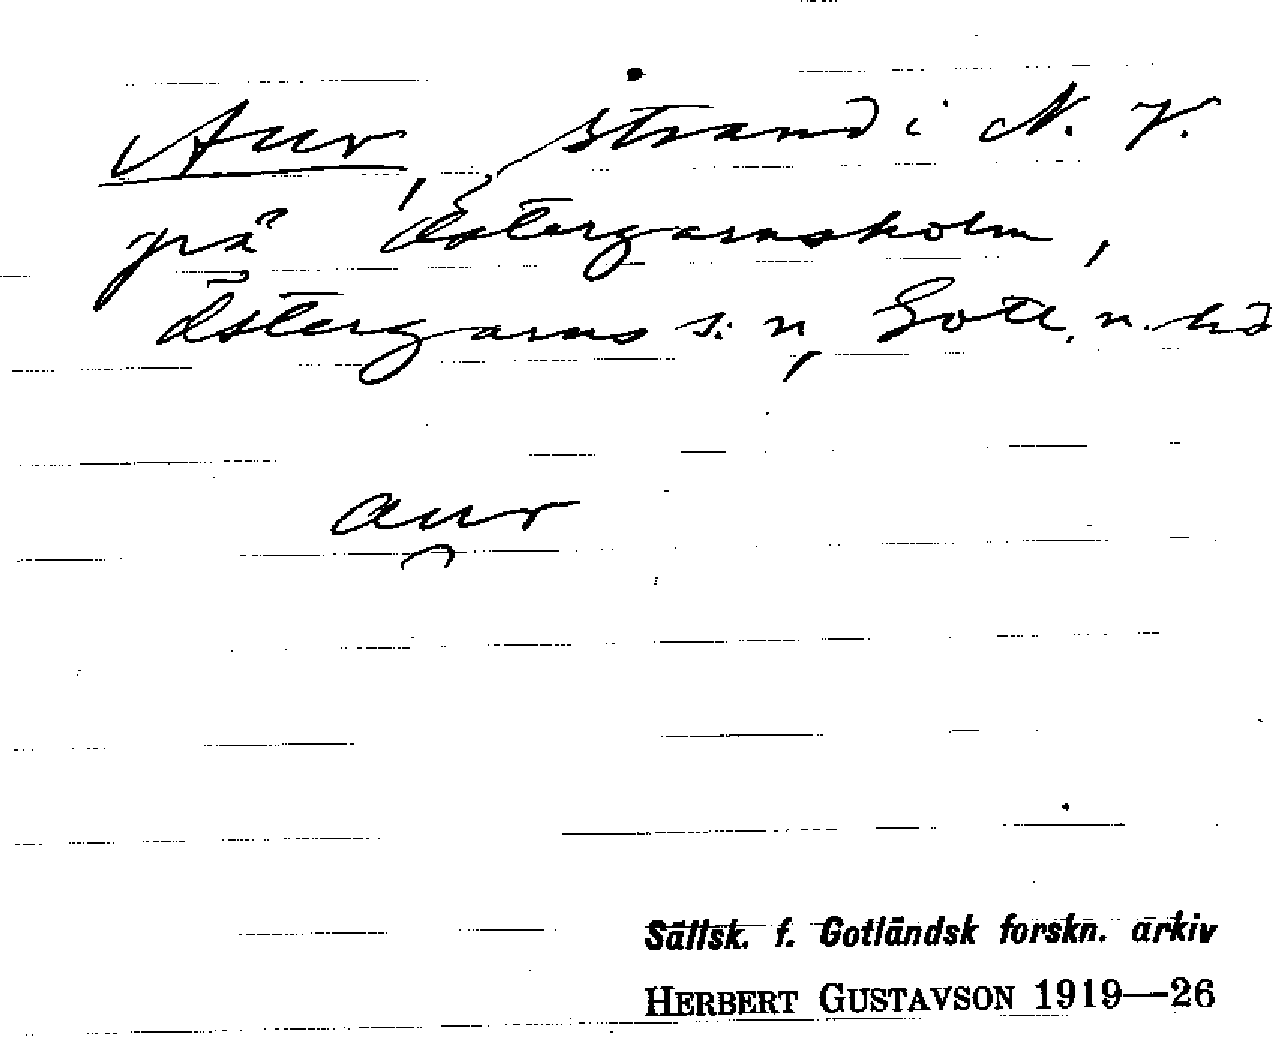 Aur, strand i N. V.
på Östergarnsholm,
Östergarns s:n, Gotl. n. hd
aur
Sällsk. f. Gotländsk forskn. arkiv
HERBERT GUSTAVSON 1919—26